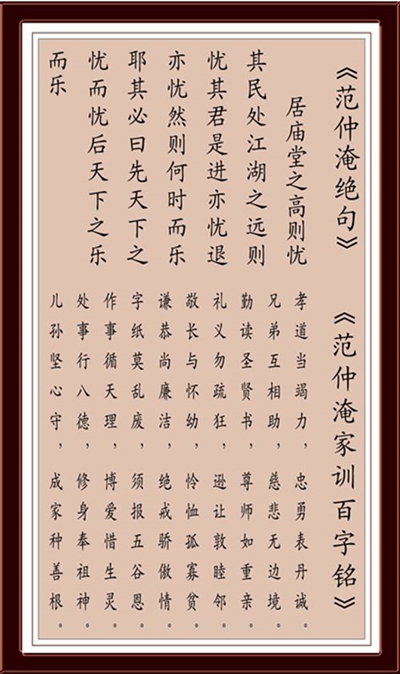 《范仲淹绝句》
居庙堂之高则忧
其民处江湖之远则
忧其君是进亦忧退
亦忧然则何时而乐
耶其必曰先天下之
忧而忧后天下之乐
而乐
《范仲淹家训百字铭》
孝道当竭力，忠勇表丹诚。
兄弟互相助，慈悲无边境。
勤读圣贤书，尊师如重亲。
礼义勿疏狂，逊让敦睦邻。
敬长与怀幼，怜恤孤寡贫。
谦恭尚廉洁，绝戒骄傲情。
字纸莫乱废，须报五谷恩。
作事循天理，博爱惜生灵。
处事行八德，修身奉祖神。
儿孙坚心守，成家种善根。